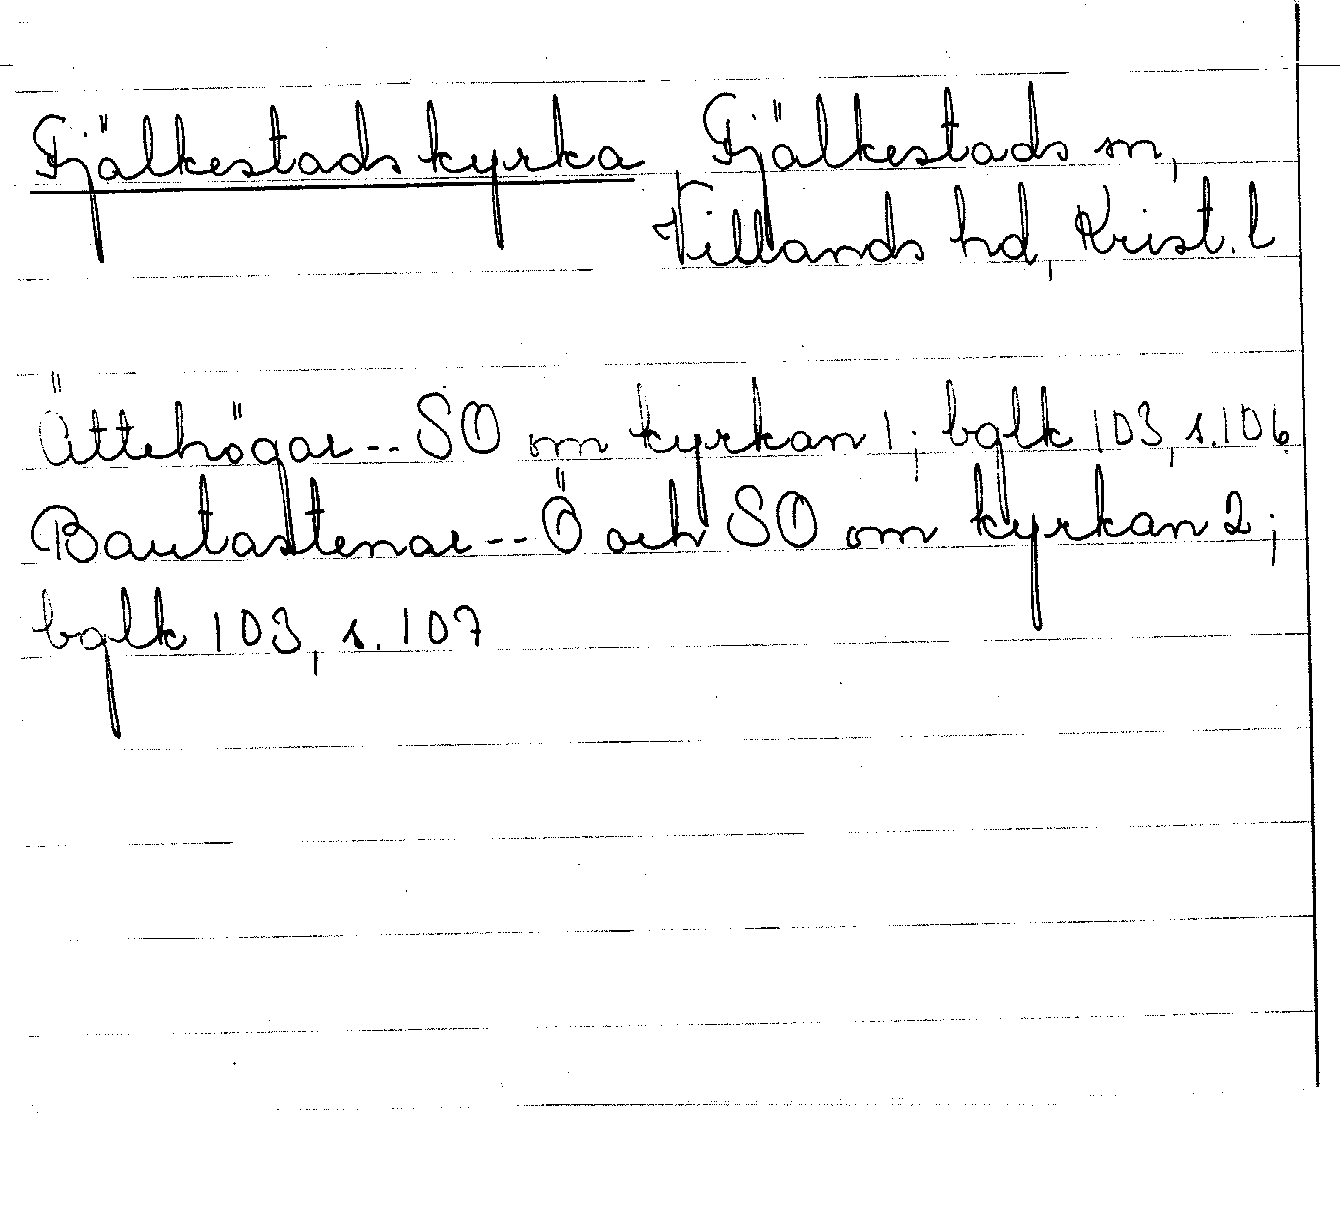 Fjälkestads kyrka Fjälkestads sn,
Villands hd, Krist. l
Ättehögar -- SO om kyrkan 1; bglk 103, s. 106
Bautastenar -- Ö och SO om kyrkan 2;
bglk 103, s. 107